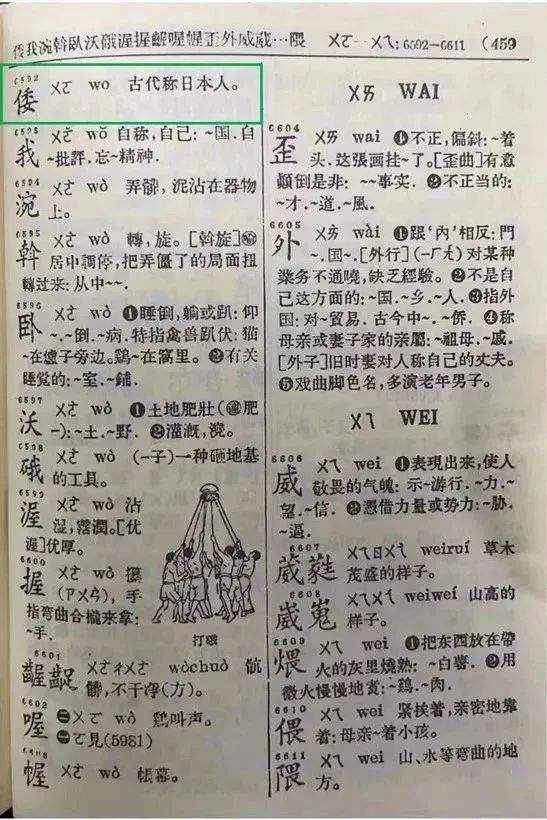 倭我涴斡臥沃硪渥握齷喔幄歪外威葳…隈 ㄨㄛ—ㄨㄟ:6592—6611 (459
6592
倭 ㄨㄛ wo 古代称日本人。
6593
我 ㄨㄛˇ wǒ 自称,自己:~国.自
~批評.忘~精神.
6594
涴 ㄨㄛˋ wò 弄髒,泥沾在器物
上。
6595
斡 ㄨㄛˋ wò 轉,旋。[斡旋]
居中調停,把弄僵了的局面扭
轉过来:从中~~.
6596
卧 ㄨㄛˋ wò ❶睡倒,躺或趴:仰
~.~倒.~病.特指禽兽趴伏:猫
~在爐子旁边.鷄~在窩里.❷有关
睡覺的:~室.~鋪.
6597
沃 ㄨㄛˋ wò ❶土地肥壯(肥
—):~土.~野.❷灌漑,澆。
6598
硪 ㄨㄛˋ wò (—子)一种砸地基
的工具。
6599
渥 ㄨㄛˋ wò 沾
湿,霑潤。[优
渥]优厚。
6600
握 ㄨㄛˋ wò 攥
(ㄗㄨㄢˋ),手
指弯曲合攏来拿:
~手.
打硪
6601
齷齪 ㄨㄛˋㄔㄨㄛˋ wòchuò 骯
髒,不干凈(方)。
6602
喔 ㊀ㄨㄛ wo 鷄叫声。
㊁ㄛ見(5981)
幄 ㄨㄛˋ wò 帳幕。
ㄨㄞ WAI
6604
歪 ㄨㄞ wai ❶不正,偏斜:~着
头.这張画挂~了.[歪曲]有意
顚倒是非:~~事实.❷不正当的:
~才.~道.~風.
6605
外 ㄨㄞˋ wài ❶跟‘内’相反:門
~.国~.[外行](—ㄏㄤˊ)对某种
業务不通曉,缺乏經驗。❷不是自
己这方面的:~国.~乡.~人.❸指外
国:对~貿易.古今中~.~侨.❹称
母亲或妻子家的亲屬:~祖母.~戚.
[外子]旧时妻对人称自己的丈夫。
❺戏曲脚色名,多演老年男子。
ㄨㄟ WEI
6606
威 ㄨㄟ wei ❶表現出来,使人
敬畏的气魄:示~游行.~力.~
望.~信.❷憑借力量或势力:~胁.
~逼.
6607
葳蕤 ㄨㄟㄖㄨㄟˊ weiruí 草木
茂盛的样子。
6608
崴嵬 ㄨㄟㄨㄟˊ weiweí 山高的
样子。
6609
煨 ㄨㄟ wei ❶把东西放在帶
火的灰里燒熟:~白薯.❷用
微火慢慢地煑:~鷄.~肉.
6610
偎 ㄨㄟ wei 紧挨着,亲密地靠
着:母亲~着小孩。
6611
隈 ㄨㄟ wei 山、水等弯曲的地
方。